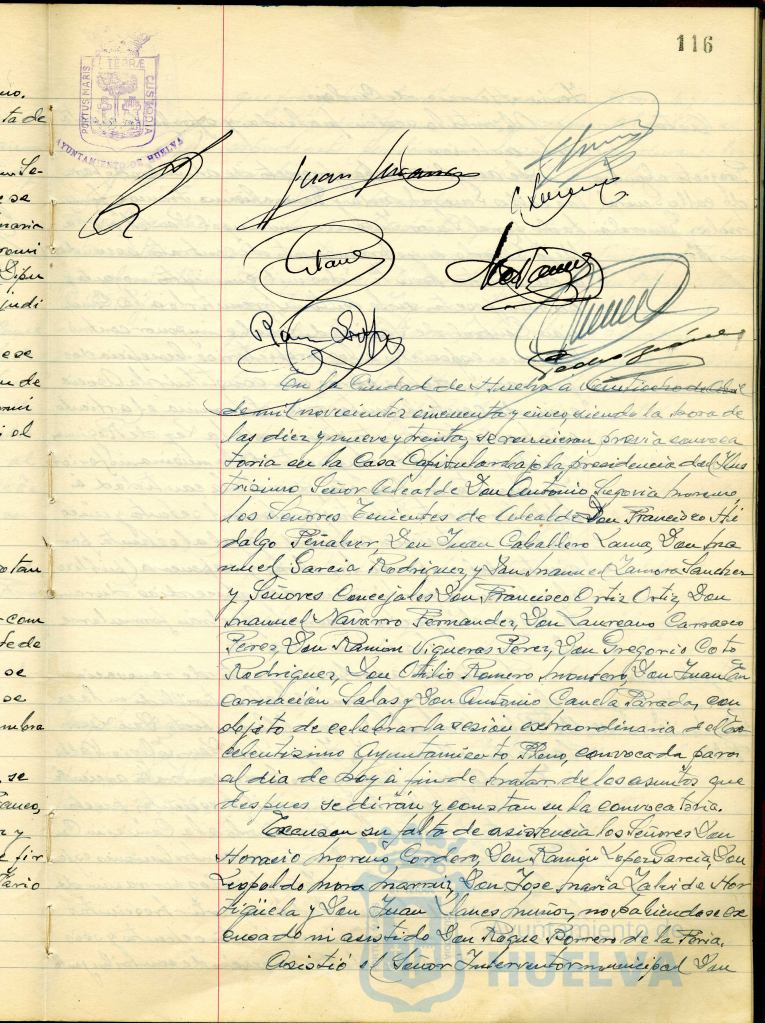 116
PORTUS MARIS
TERRAE
CUSTODIA
AYUNTAMIENTO DE HUELVA
Juan Jimenez
Pedro Jiménez
En la Ciudad de Huelva a
de mil novecientos cincuenta y cinco, siendo la hora de
las diez y nueve y treinta, se reunieron previa convoca
toria en la Casa Capitular bajo la presidencia del Ilus
trisimo Señor Alcalde Don Antonio Segovia Moreno,
los Señores Tenientes de Alcalde Don Francisco Hi
dalgo Peñalver, Don Juan Caballero Lama, Don Ma
nuel Garcia Rodriguez y Don Manuel Zamora Sanchez
y Señores Concejales Don Francisco Ortiz Ortiz, Don
Manuel Navarro Fernandez, Don Laureano Carrasco
Perez, Don Ramon Vigueras Perez, Don Gregorio Coto
Rodriguez, Don Otilio Romero Montero, Don Juan En
carnación Salas y Don Antonio Canela Parada, con
objeto de celebrar la sesión extraordinaria del Ex
celentisimo Ayuntamiento Pleno, convocada para
el dia de hoy a fin de tratar de los asuntos que
despues se dirán y constan en la convocatoria.
Excusan su falta de asistencia los Señores Don
Horacio Moreno Cordero, Don Ramón Lopez Garcia, Don
Leopoldo Mora Don Jose Maria de Hor
tigüela y Don Juan Llanes Muñoz, no habiendose ex
cusado ni asistido Don Roque Borrero de la Feria.
Asistió el Señor Interventor municipal Don
Ayuntamiento de
HUELVA